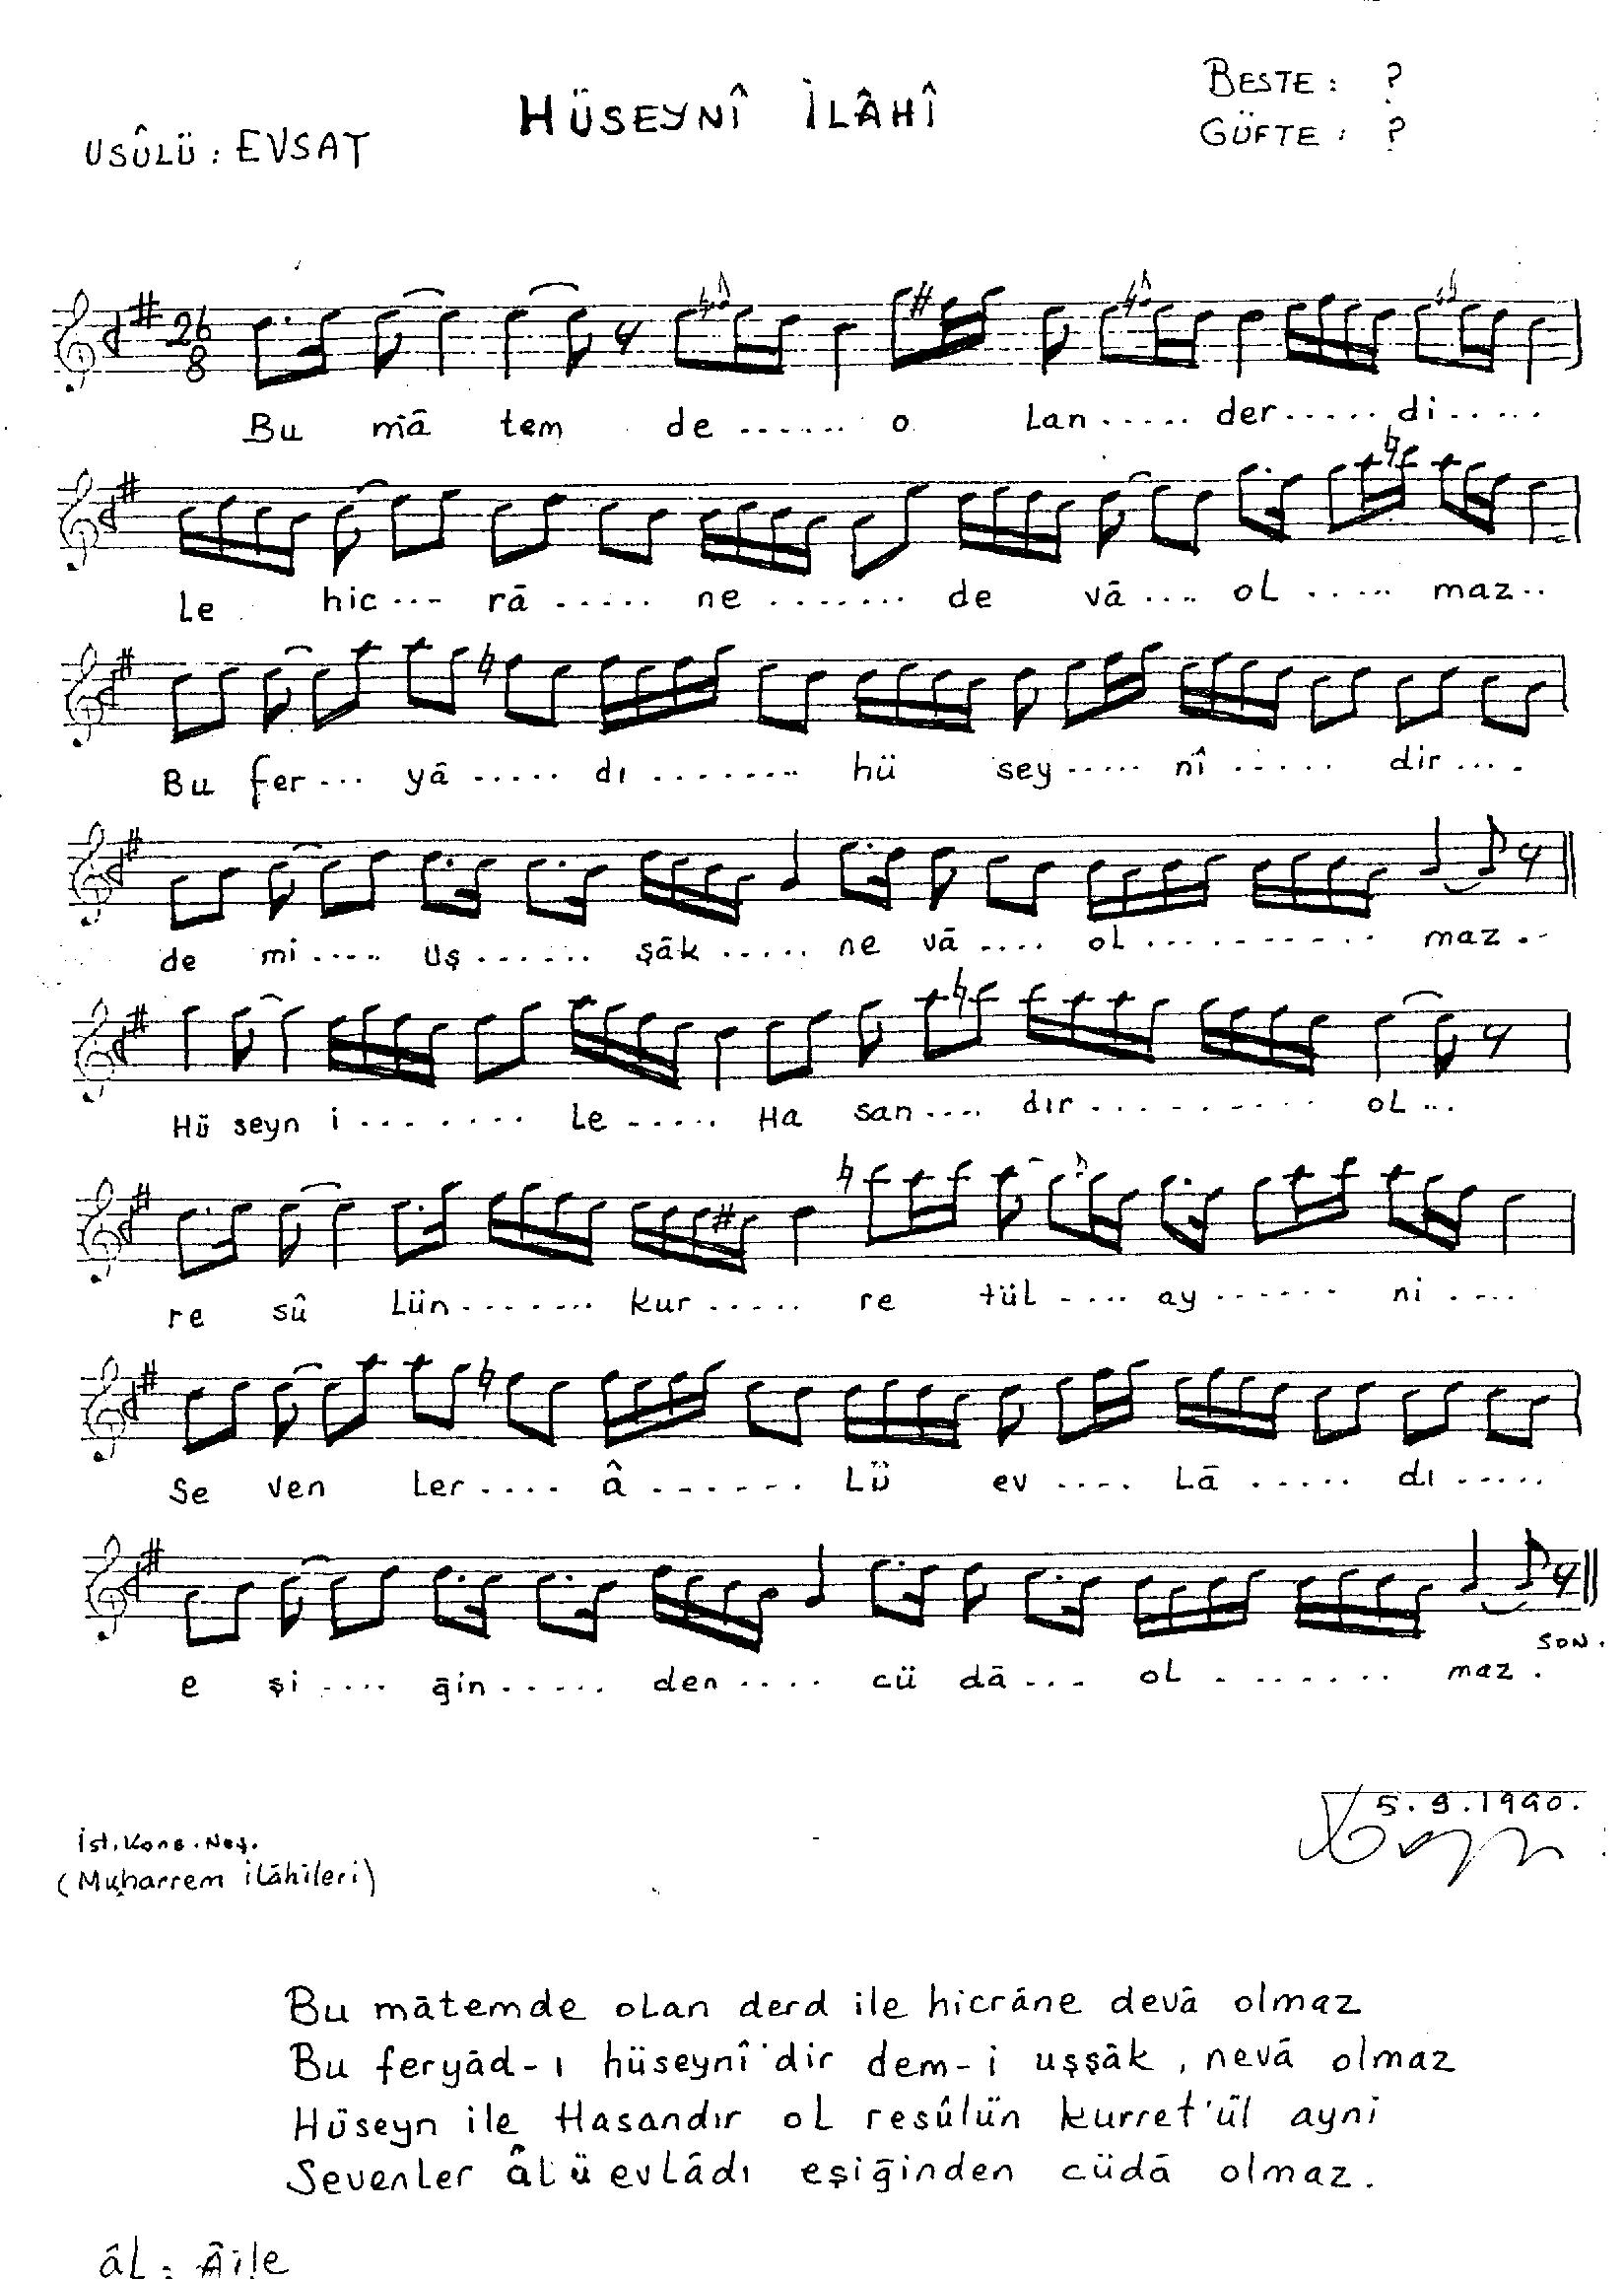 BESTE : ?
HÜSEYNÎ İLÂHÎ
USÛLÜ : EVSAT
GÜFTE : ?
26
8
Bu mā tem de ...... o Lan ..... der ..... di .....
Le hic ... rā ..... ne ....... de vā .... oL ..... maz ..
Bu fer ... yā ..... dı ........ hü sey ..... nî ..... dir ....
de mi ..... uş ...... şāk ..... ne vā .... oL .......... maz ..
Hü seyn i ........ Le ..... Ha san .... dır ......... oL ...
re sû Lün ....... kur ..... re tül .... ay ...... ni ....
Se ven Ler .... â ....... Lü ev .... Lā ..... dı .....
SON.
e şi .... ğin ..... den .... cü dā ... oL ....... maz .
5.9.1990.
İst. Kons. Neş.
(Muharrem ilāhileri)
Bu mātemde oLan derd ile hicrāne devā olmaz
Bu feryād-ı hüseynî'dir dem-i uşşāk, nevā olmaz
Hüseyn ile Hasandır oL resûlün kurret'ül ayni
Sevenler âL ü evLādı eşiğinden cüdā olmaz.
âL : Âile